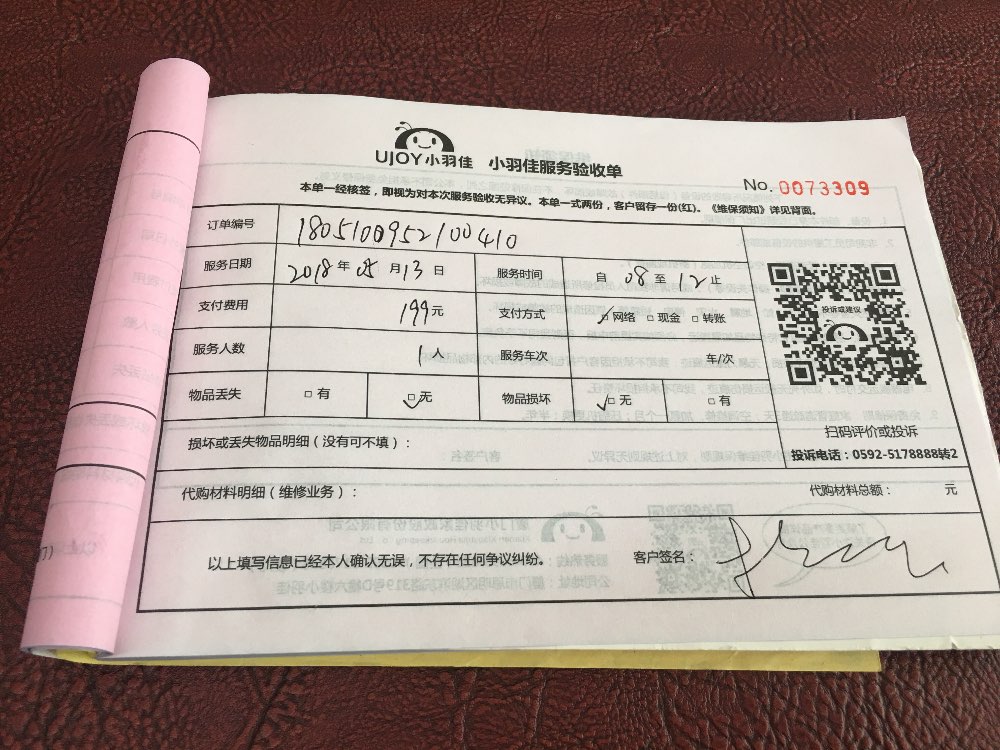 UJOY小羽佳 小羽佳服务验收单
No. 0073309
本单一经核签，即视为对本次服务验收无异议。本单一式两份，客户留存一份(红)。《维保须知》详见背面。
订单编号 1805100952100410
服务日期 2018年05月13日 服务时间 自08至12止
支付费用 199元 支付方式 □网络 □现金 □转账
服务人数 1人 服务车次 车/次
物品丢失 □有 □无 物品损坏 □无 □有
投诉或建议
扫码评价或投诉
投诉电话：0592-5178888转2
损坏或丢失物品明细（没有可不填）：
代购材料明细（维修业务）： 代购材料总额： 元
以上填写信息已经本人确认无误，不存在任何争议纠纷。 客户签名：